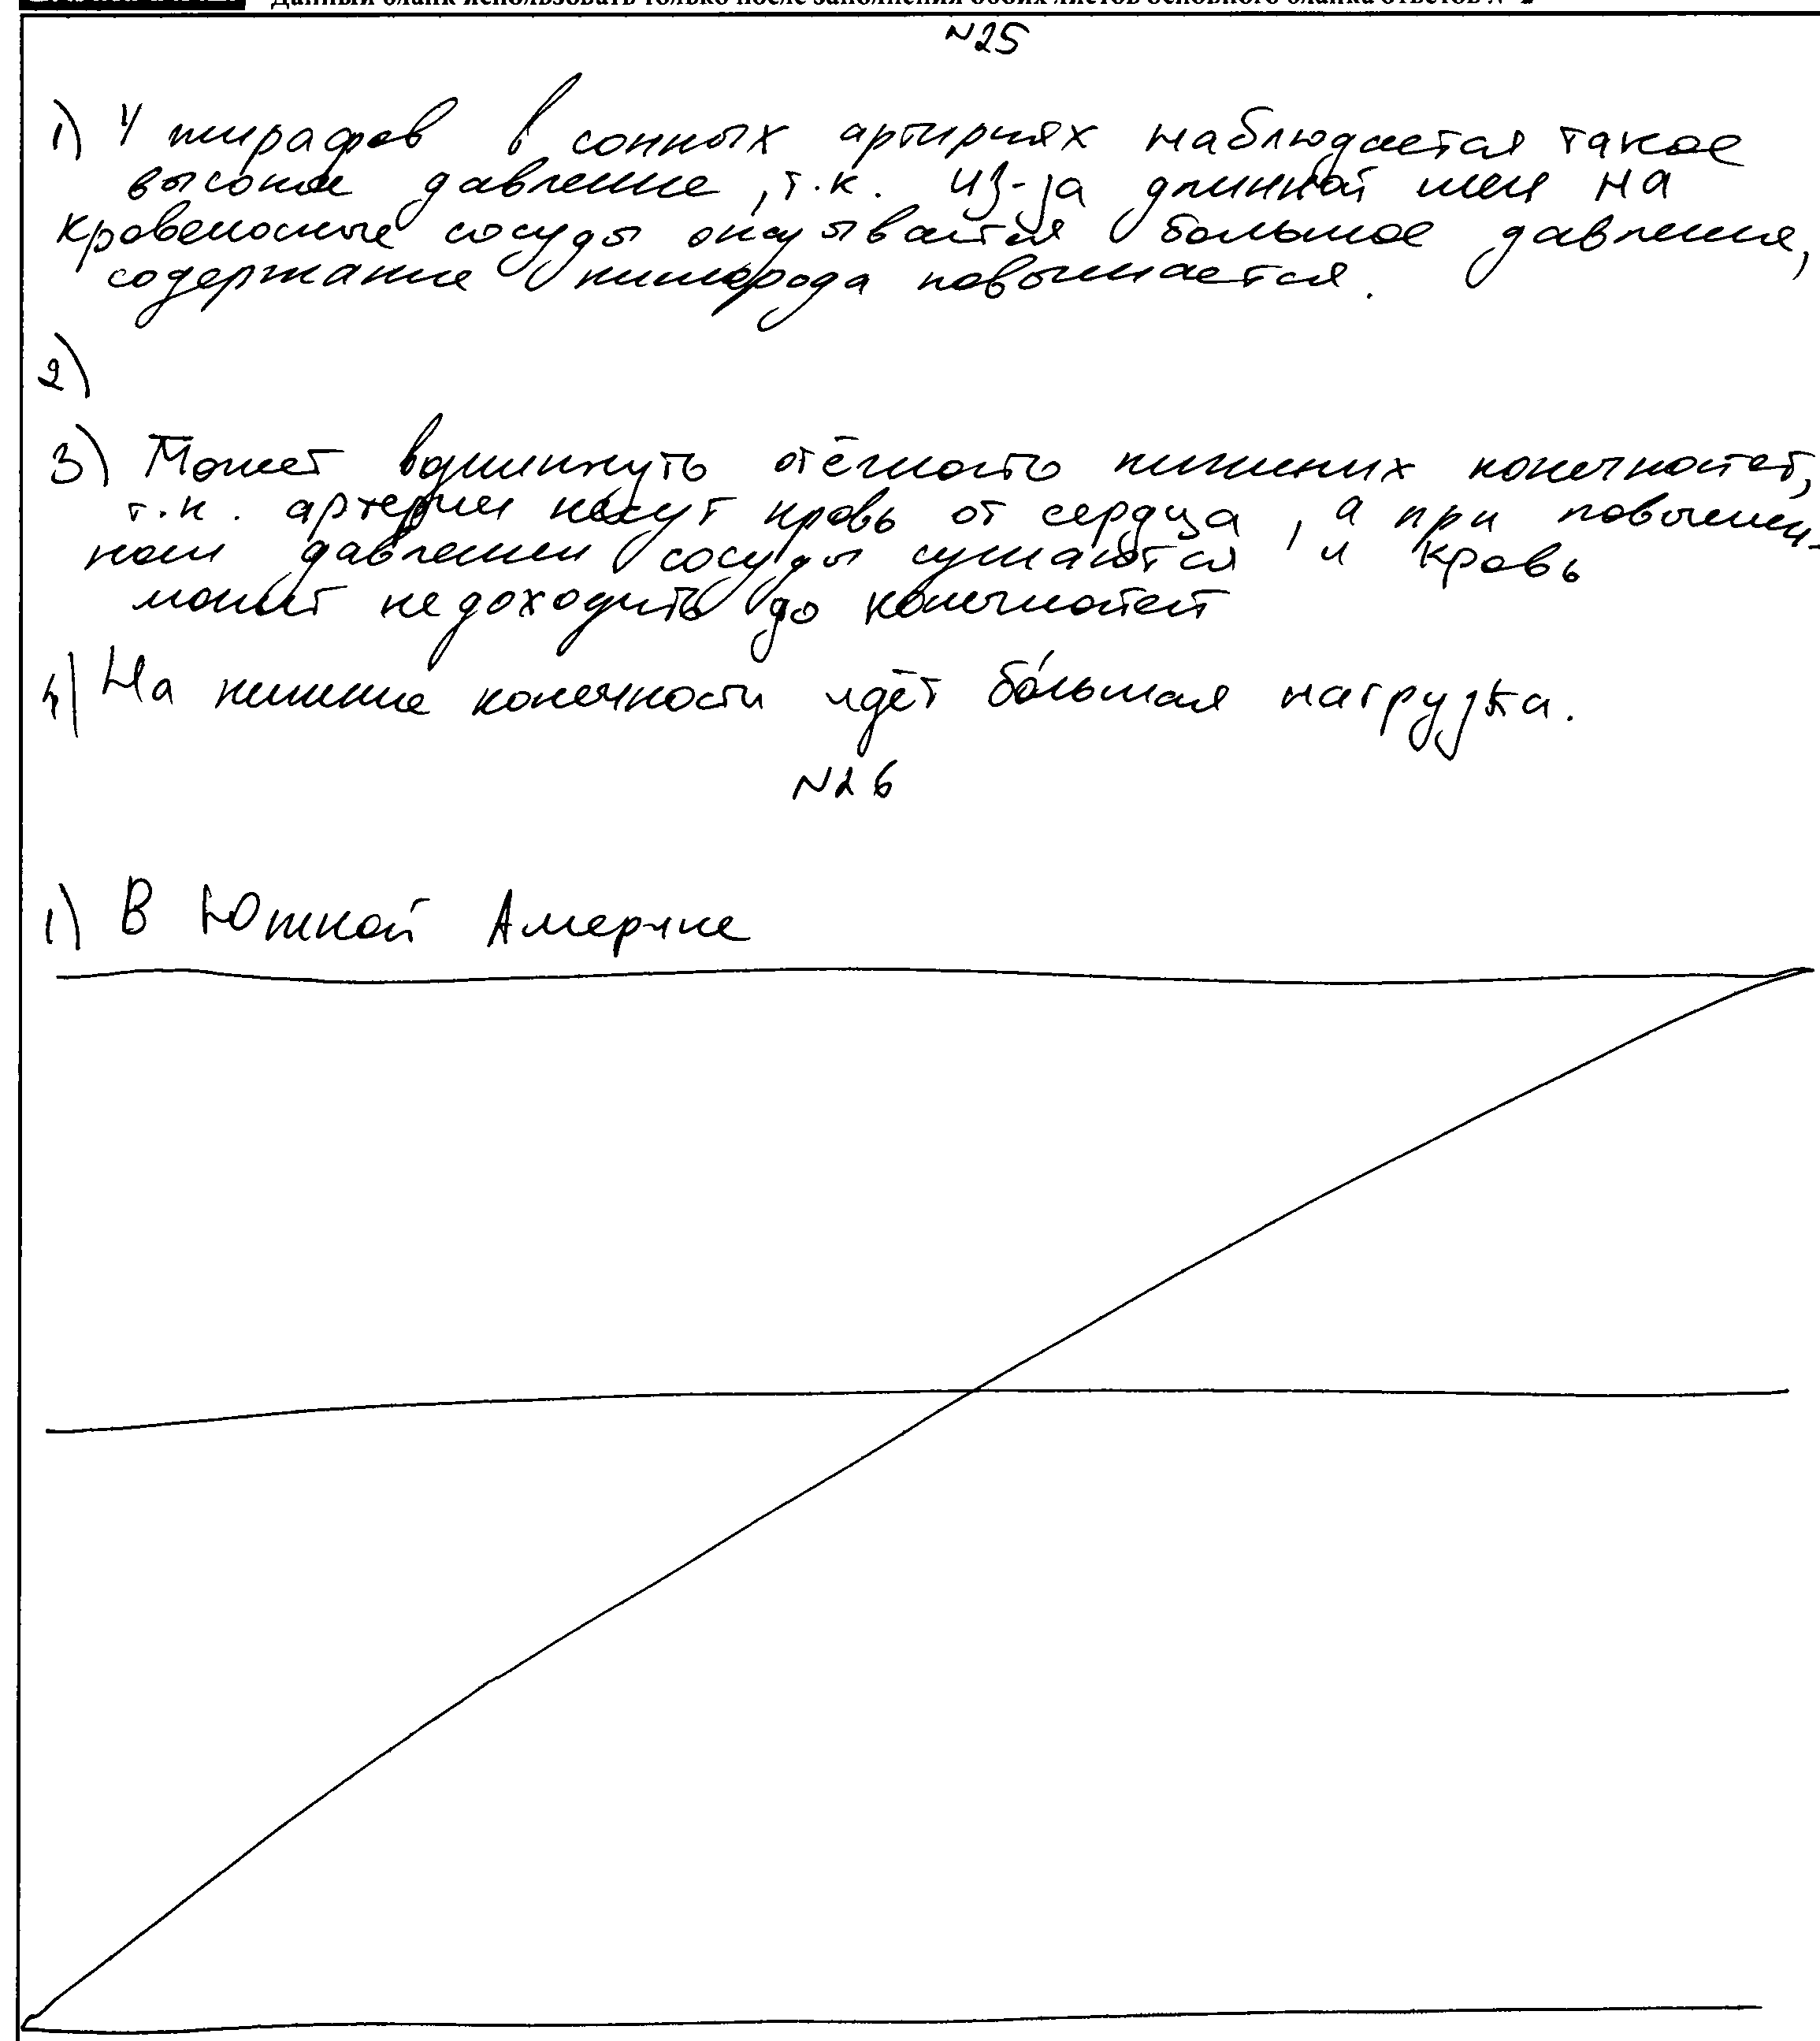 Данный бланк использовать только после заполнения обоих листов основного бланка ответов № 2
№25
1) У жирафов в сонных артириях наблюдается такое
высокое давление, т.к. из-за длинной шеи на
кровеносные сосуды оказывается большое давление,
содержание кислорода повышается.
2)
3) Может возникнуть отёчность нижних конечностей,
т.к. артерии несут кровь от сердца, а при повышен-
ном давлении сосуды сужаются и кровь
может не доходить до конечностей
4) На нижние конечности идёт бо́льшая нагрузка.
№26
1) В Южной Америке